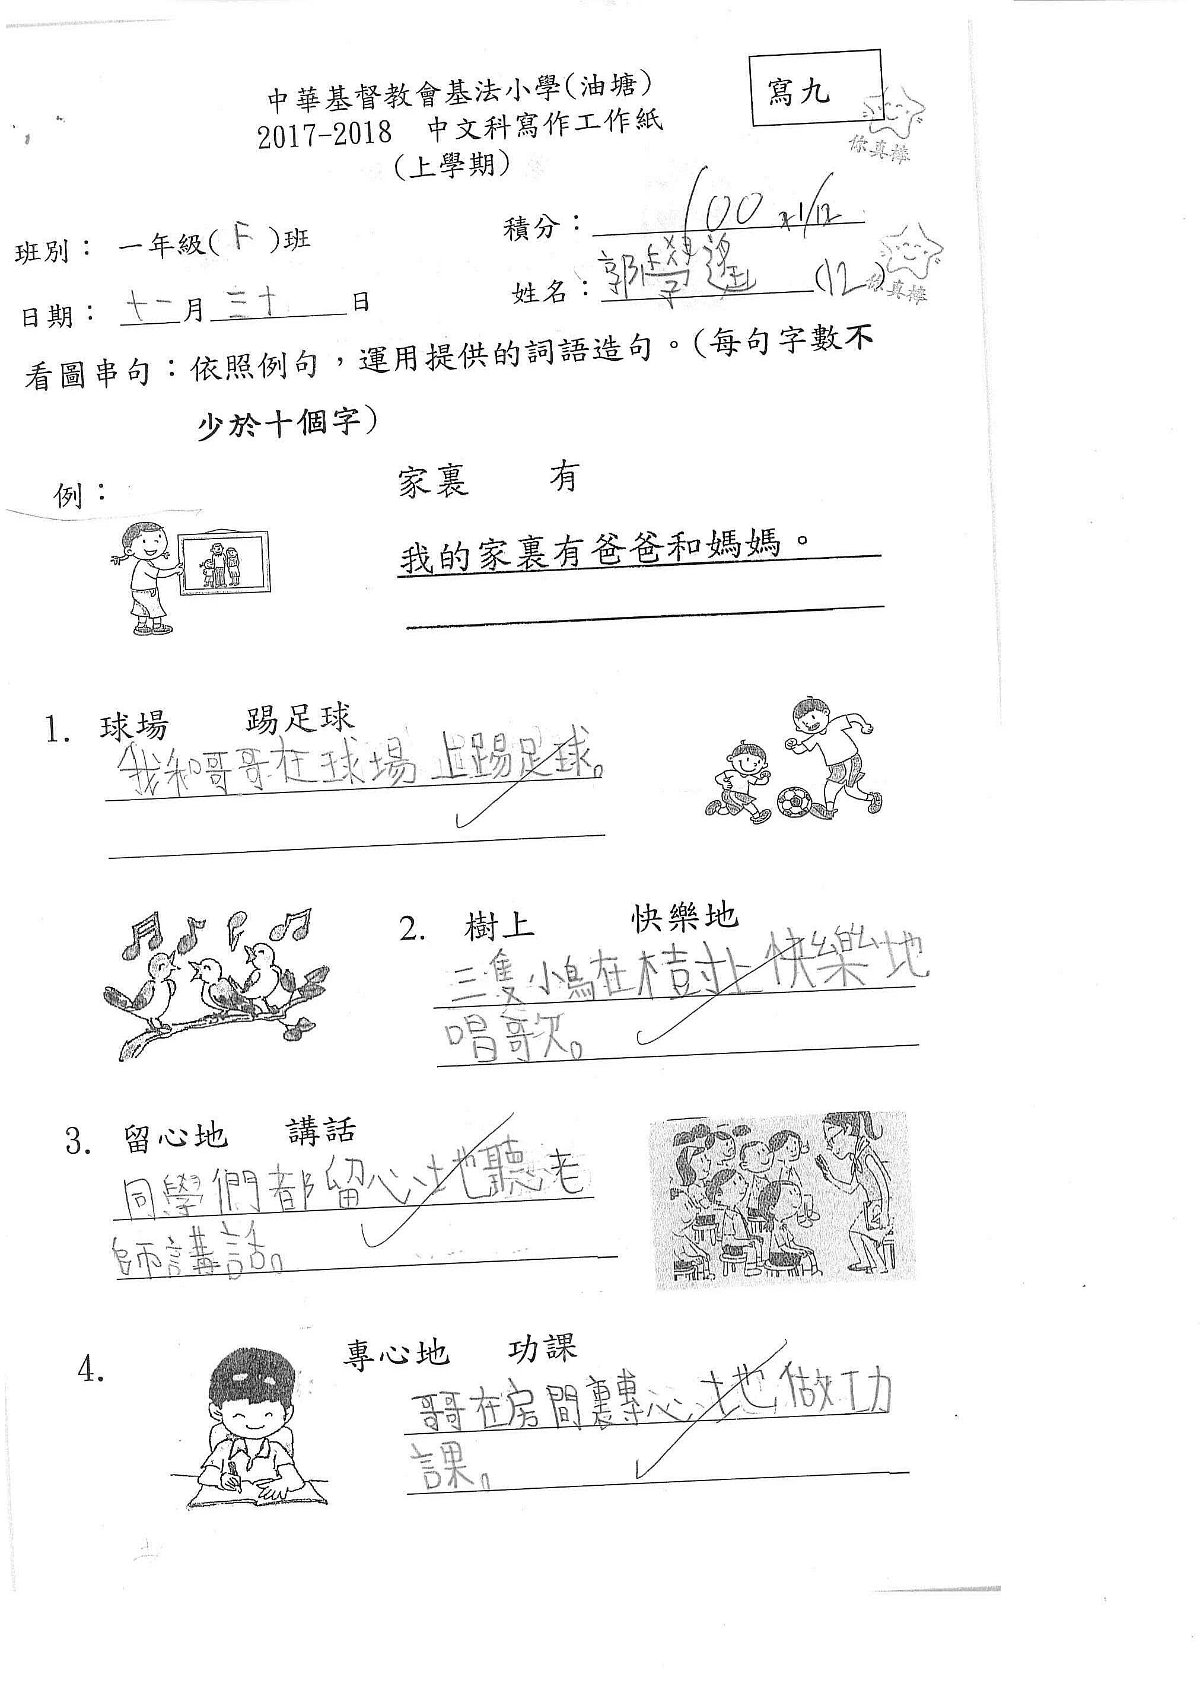 中華基督教會基法小學(油塘)
寫九
2017-2018 中文科寫作工作紙
(上學期)
你真棒
班別： 一年級( F )班
積分： 100 1/12
日期： 十一月三十日
姓名：郭學遙 (12)
你真棒
看圖串句：依照例句，運用提供的詞語造句。(每句字數不
少於十個字)
例：
家裏 有
我的家裏有爸爸和媽媽。
1. 球場 踢足球
我和哥哥在球場上踢足球。
2. 樹上 快樂地
三隻小鳥在樹上快樂地
唱歌。
3. 留心地 講話
同學們都留心地聽老
師講話。
4. 專心地 功課
哥哥在房間裏專心地做功
課。